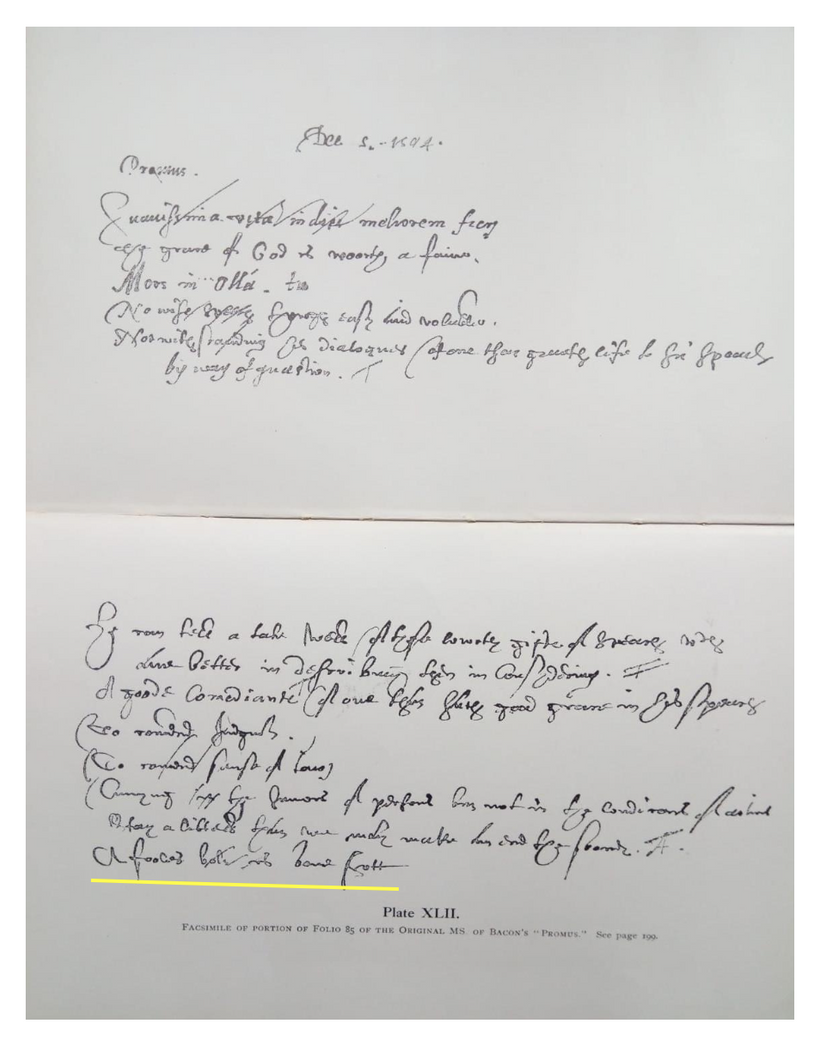 Dec 5. - 1594.
Promus.
Suauissima vita indies meliorem fieri
The grace of God is woorth a faire.
Mors in Olla.
No wise speech though easy and voluble.
Notwithstanding his dialogues (of one that giueth life to his speach
by way of question.
He can tell a tale well (of those cowrtly giftes of speach wch
are better in describing then in consydering.
A good Comediante (of one that hath good grace in his speach
(To commend Judgmts.
(To commend sense of law
(Cunyng in the humors of persons but not in the condicons of actions
Stay a littell that we may make an end the sooner.
A fooles bolt is soone shott
Plate XLII.
Facsimile of portion of Folio 85 of the Original MS. of Bacon's "Promus." See page 199.